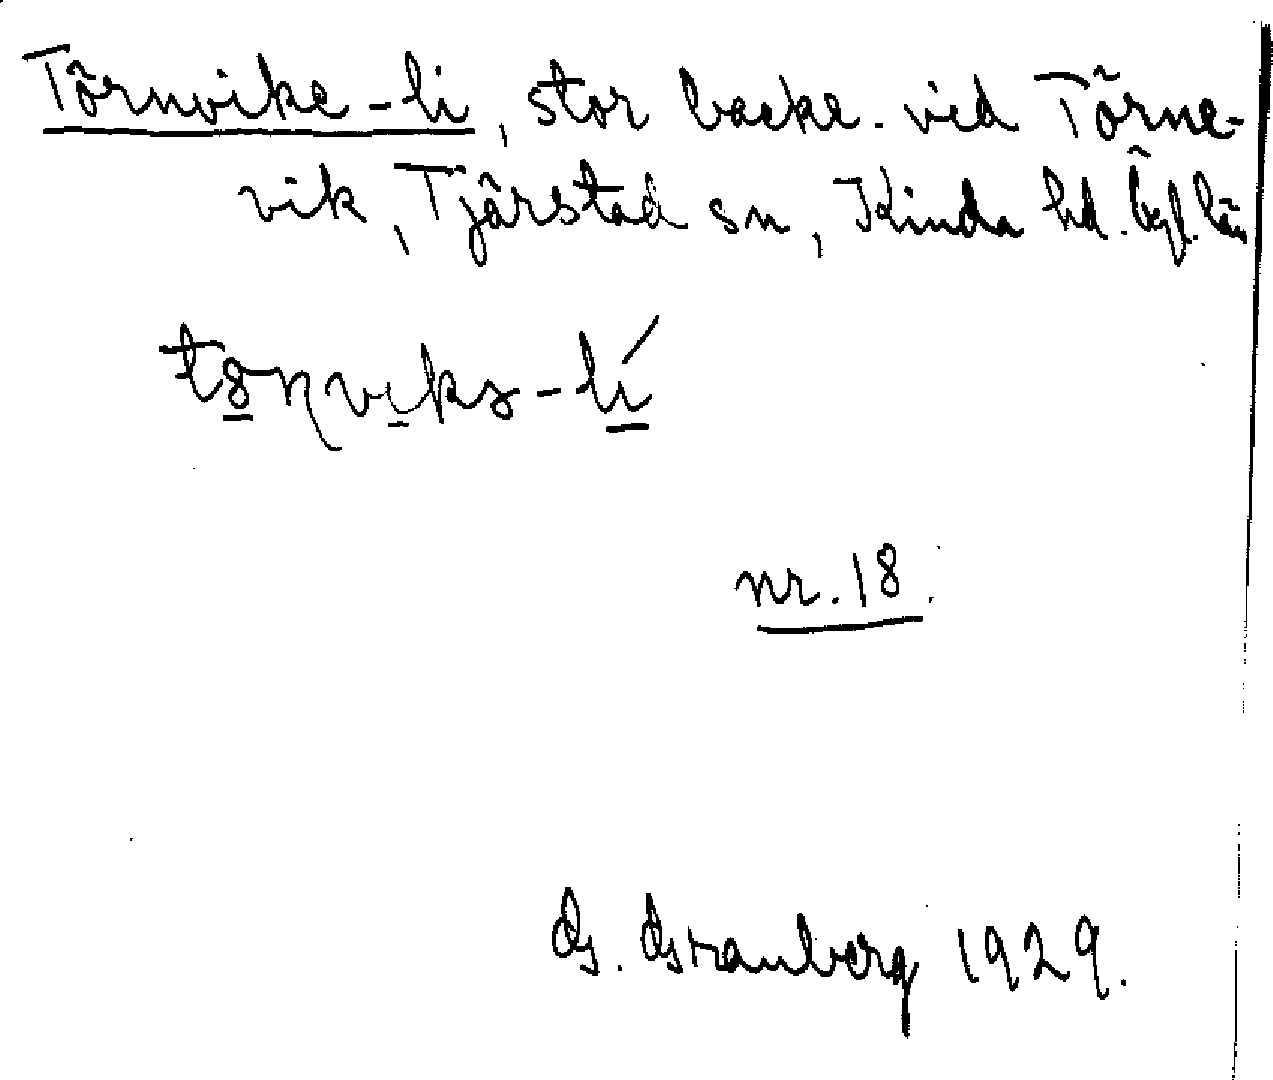 Törnvike-li, stor backe vid Törne-
vik, Tjärstad sn, Kinda hd. Ögl. län
nr. 18.
G. Granberg 1929.